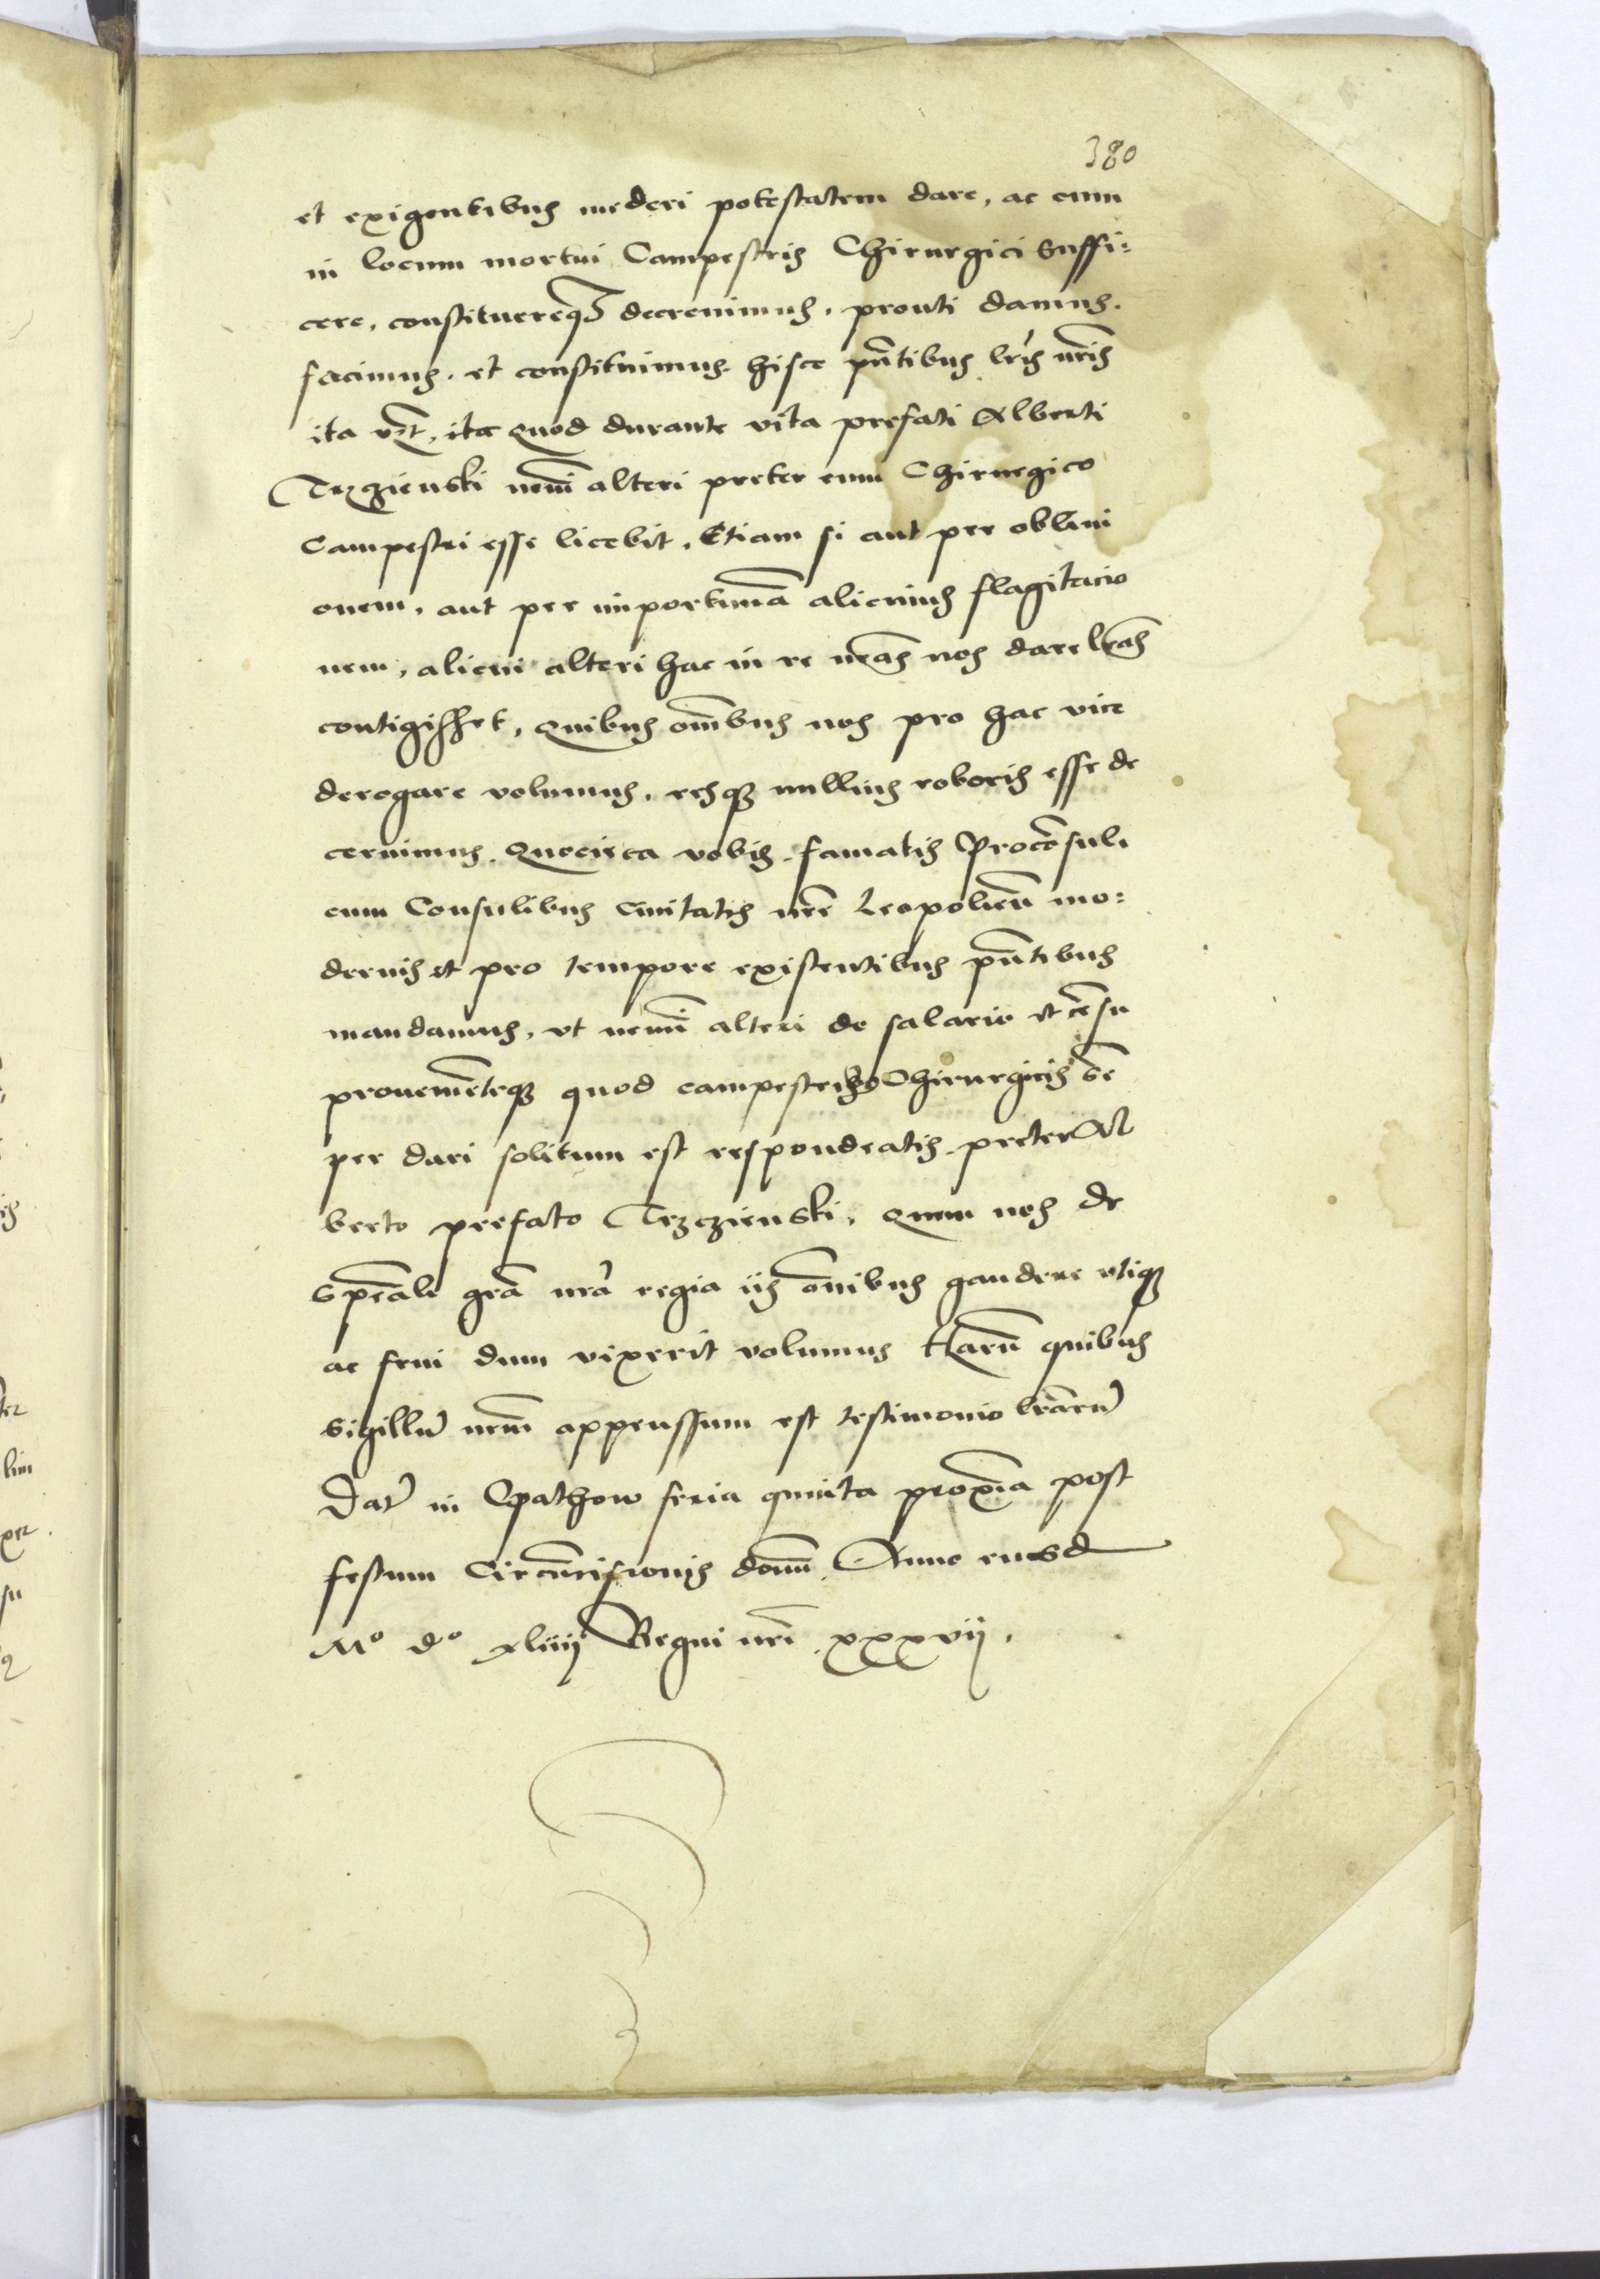 380
et exigentibus mederi potestatem dare, ac eum
in locum mortui Campestris Chirurgici Suffi:
cere, constituereq3 decrevimus, prouti damus.
facimus. et constituimus hisce pñtibus lr̃is nr̃is
ita vz̃t, ita quod durante vita prefati Alberti
Trzczienski nemĩ alteri preter eum Chirurgico
Campestri esse licebit, Etiam si aut per oblivi
onem, aut per importunã alicuius flagitacio
nem, alicui alteri hac in re nr̃as nos dare lr̃as
contigisset, quibus om̃bus nos pro hac vice
derogare volumus, easq3 nullius roboris esse de
cernimus. Quocirca vobis famatis Procõsuli
cum Consulibus Civitatis nr̃e Leopolieñ mo:
dernis et pro tempore existentibus pñtibus
mandamus, vt nemĩ alteri de salario et cẽsu
prouenteq3 quod campestribus Chirurgicis sẽ
per dari solitum est respondeatis preter Al
berto prefato Trzczienski, quem nos de
Speciali gr̃a nr̃a regia iis om̃nibus gaudere vtiq3
ac frui dum vixerit volumus Harũ quibus
sigillũ nr̃m appenssum est testimonio lr̃arũ
Dat̃ in Opathow feria quinta proxĩa post
festum Circũcisionis dom̃ Anno eiusd
Mº dº xliiij Regni nr̃i xxxvij.